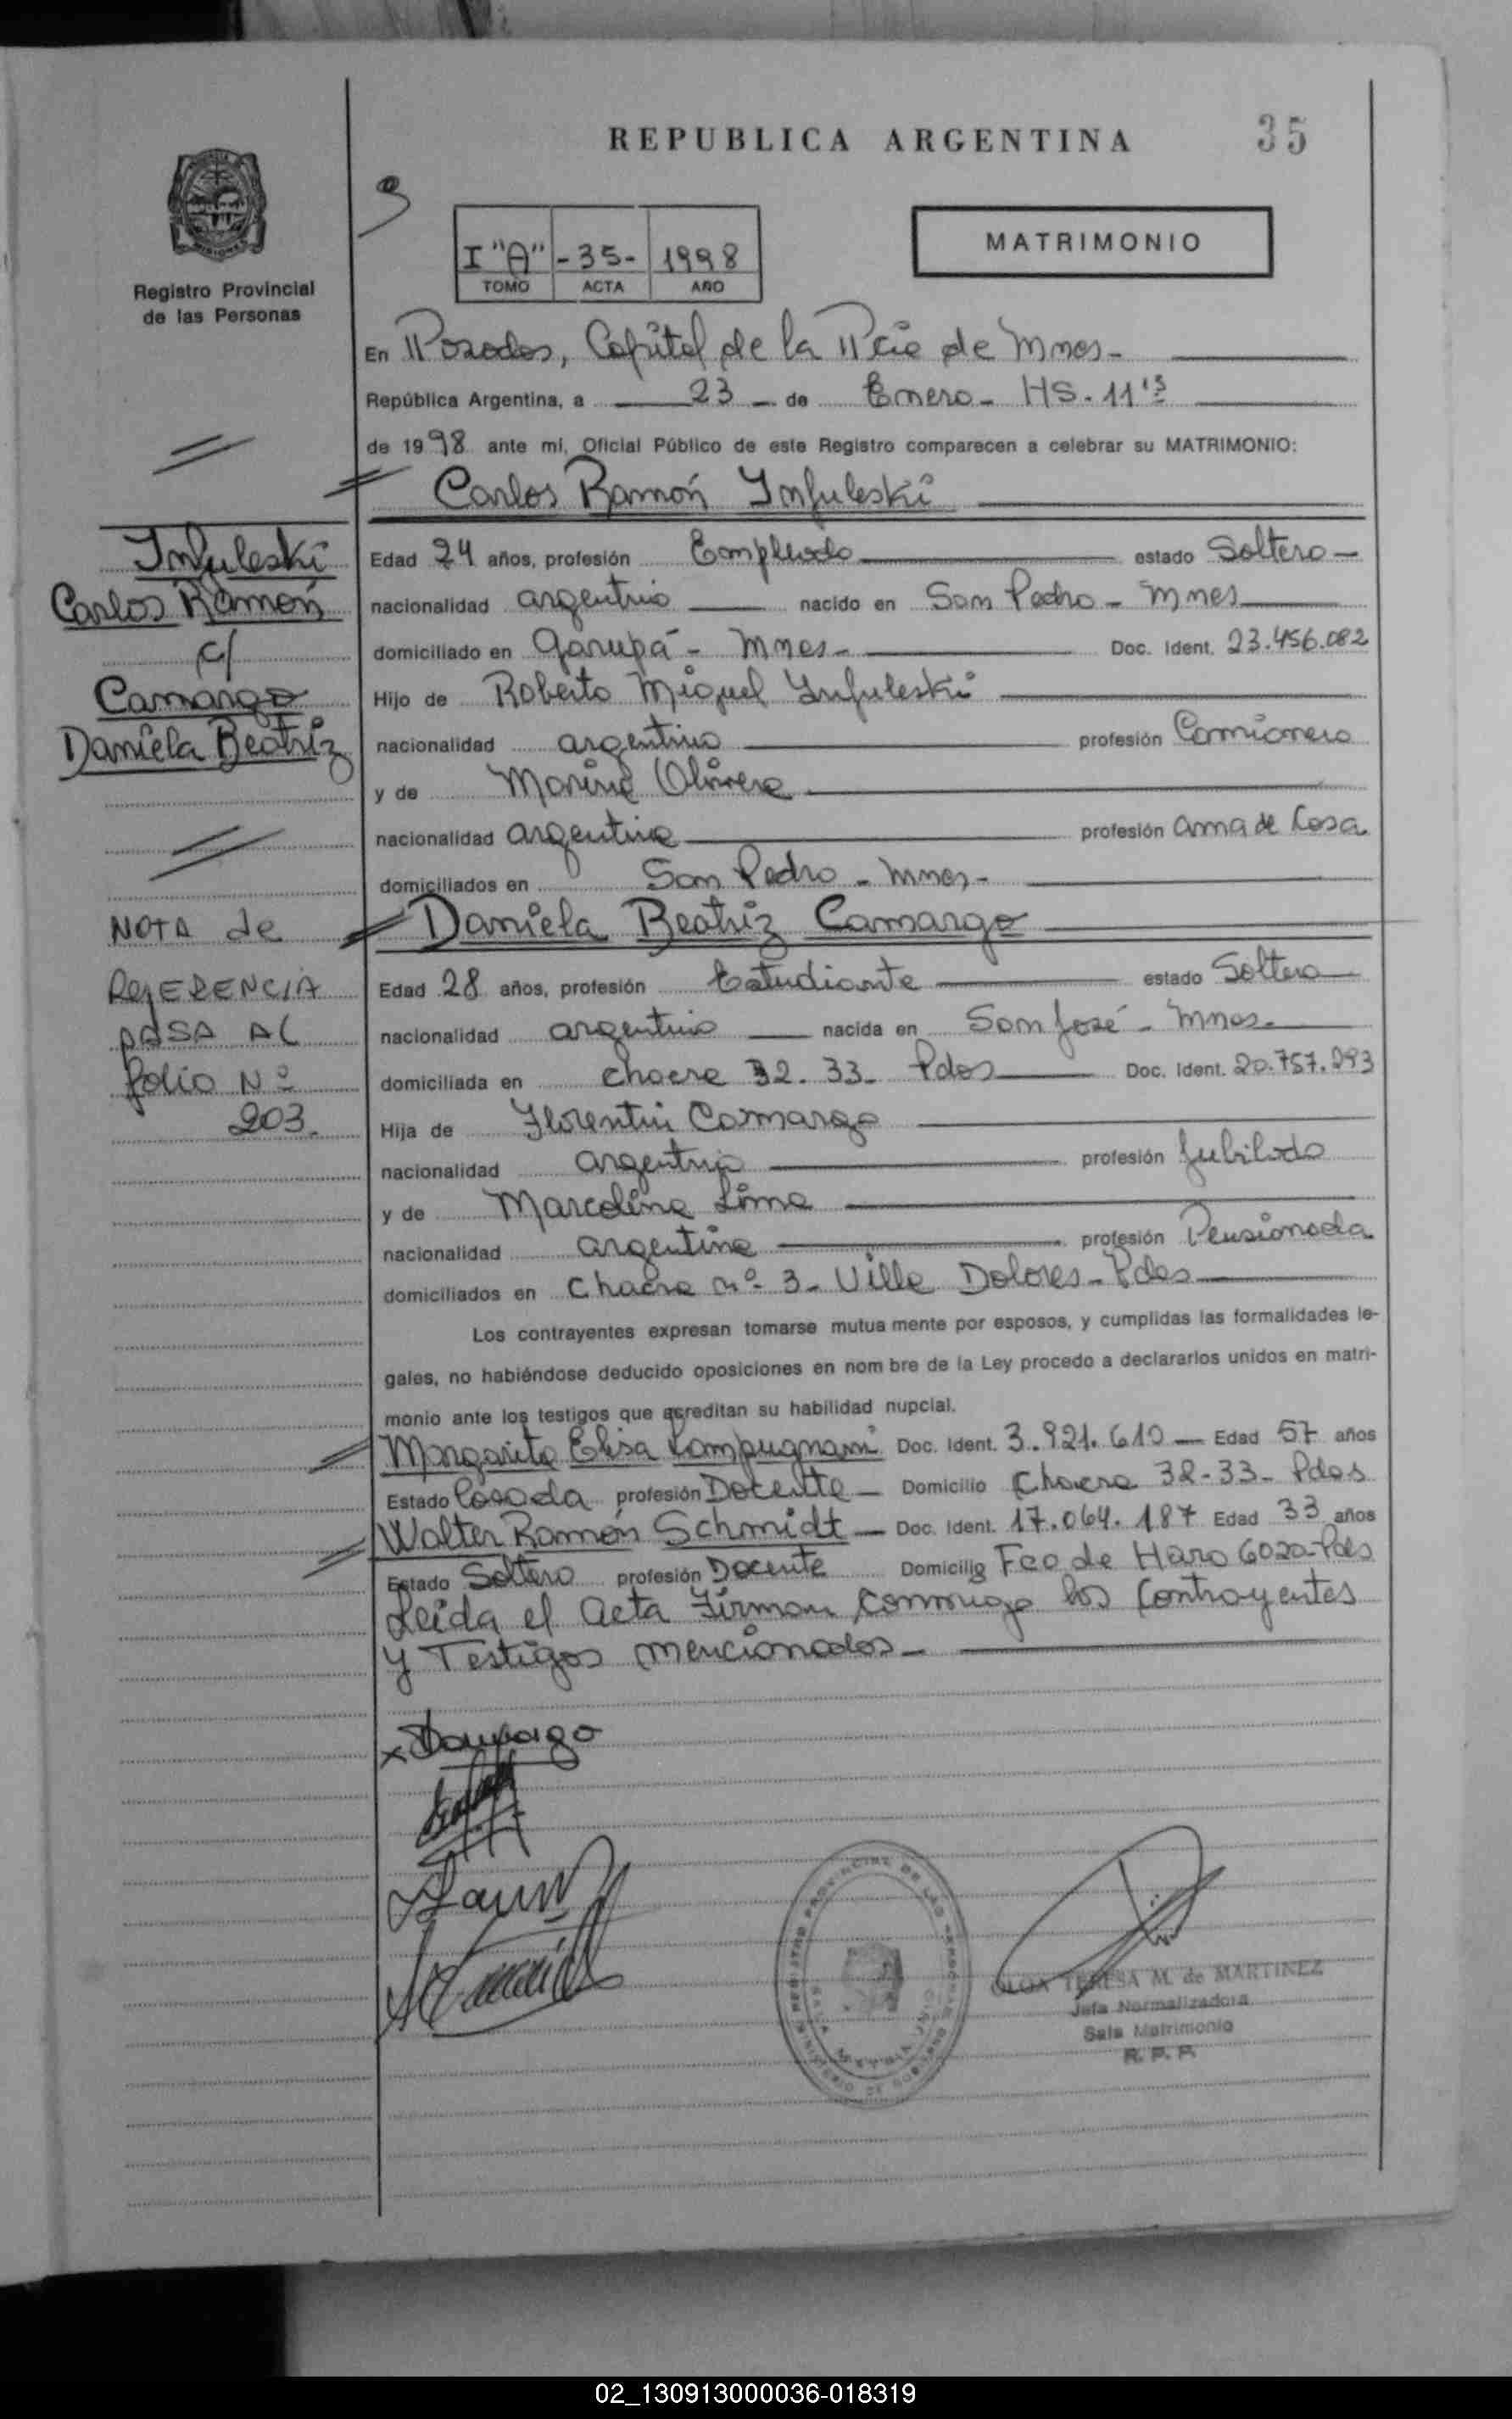 REPUBLICA ARGENTINA
35
I "A" -35- 1998
TOMO ACTA AÑO
MATRIMONIO
Registro Provincial
de las Personas
En Posadas, Capital de la Pcia de Mnes-
República Argentina, a 23 - de Enero - HS. 11'15
de 1998 ante mi, Oficial Público de este Registro comparecen a celebrar su MATRIMONIO:
Carlos Ramón Infuleski
Infuleski
Carlos Ramón
c/
Camargo
Daniela Beatriz
Edad 24 años, profesión Empleado estado Soltero -
nacionalidad argentino nacido en San Pedro - Mnes
domiciliado en Garupá - Mnes - Doc. Ident. 23.456.082
Hijo de Roberto Miguel Infuleski
nacionalidad argentino profesión Camionero
y de Marina Olivera
nacionalidad argentina profesión ama de Casa
domiciliados en San Pedro - Mnes -
NOTA de
REFERENCIA
PASA AL
folio Nº
203.
Daniela Beatriz Camargo
Edad 28 años, profesión Estudiante estado Soltera
nacionalidad argentina nacida en San José - Mnes.
domiciliada en chacra 32. 33. Pdas Doc. Ident. 20.757.293
Hija de Florentin Camargo
nacionalidad argentino profesión Jubilado
y de Marcolina Lima
nacionalidad argentina profesión Pensionada
domiciliados en Chacra nº 3 - Villa Dolores - Pdas
Los contrayentes expresan tomarse mutua mente por esposos, y cumplidas las formalidades le-
gales, no habiéndose deducido oposiciones en nom bre de la Ley procedo a declararlos unidos en matri-
monio ante los testigos que acreditan su habilidad nupcial.
Margarita Elisa Lampugnani Doc. Ident. 3.921.610 - Edad 57 años
Estado Casada profesión Docente - Domicilio Chacra 32-33- Pdas
Walter Ramón Schmidt - Doc. Ident. 17.064.187 Edad 33 años
Estado Soltero profesión Docente Domicilio Fco de Haro 6020-Pdas
Leida el acta Firman conmigo los Contrayentes
y Testigos mencionados -
OLGA TERESA M. de MARTINEZ
Jefa Normalizadora
Sala Matrimonio
R. P. P.
02_130913000036-018319